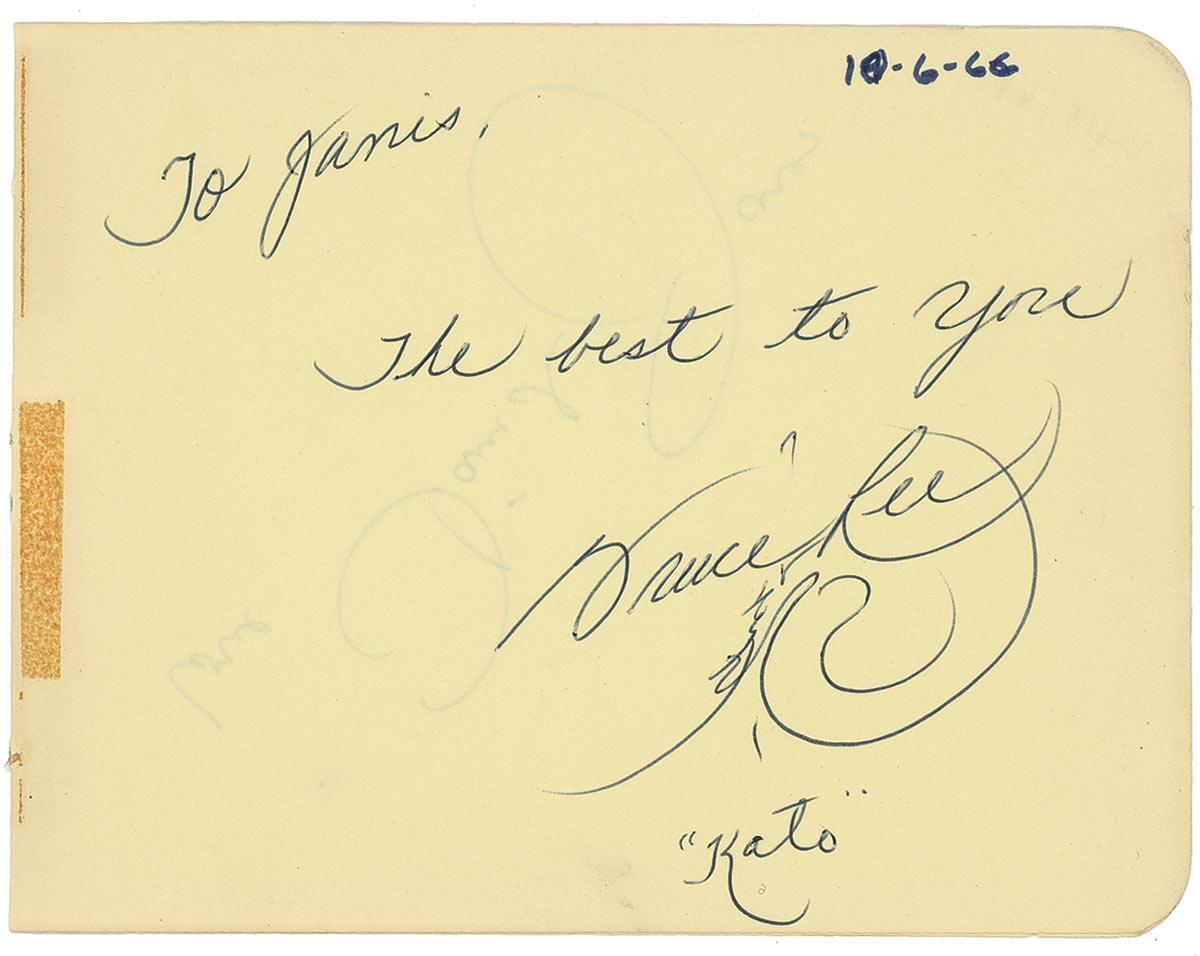 10-6-66
To Janis,
The best to you
Bruce Lee
"Kato"